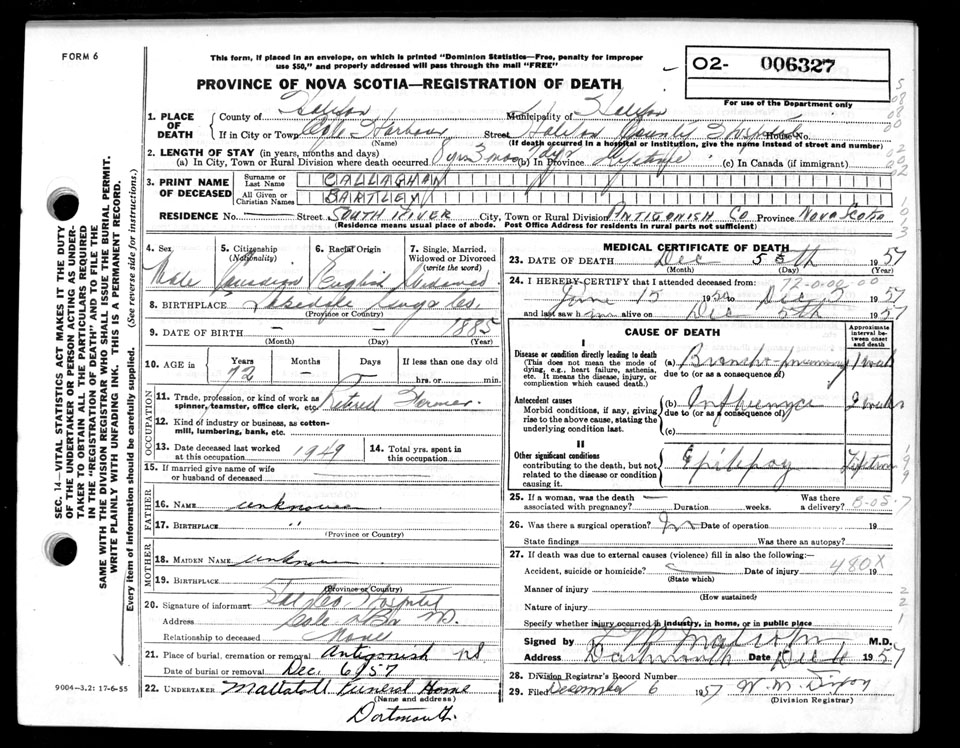 FORM 6
This form, if placed in an envelope, on which is printed "Dominion Statistics—Free, penalty for improper
use $50," and properly addressed will pass through the mail "FREE"
PROVINCE OF NOVA SCOTIA—REGISTRATION OF DEATH
O2- 006327
For use of the Department only
SEC. 14—VITAL STATISTICS ACT MAKES IT THE DUTY
OF THE UNDERTAKER OR PERSON ACTING AS UNDER-
TAKER TO OBTAIN ALL THE PARTICULARS REQUIRED
IN THE "REGISTRATION OF DEATH" AND TO FILE THE
SAME WITH THE DIVISION REGISTRAR WHO SHALL ISSUE THE BURIAL PERMIT.
WRITE PLAINLY WITH UNFADING INK. THIS IS A PERMANENT RECORD.
Every item of information should be carefully supplied. (See reverse side for instructions.)
1. PLACE OF DEATH County of Halifax Municipality of Halifax
If in City or Town Cole Harbour (Name) Street Halifax County Hospital House No.
(If death occurred in a hospital or institution, give the name instead of street and number)
2. LENGTH OF STAY (in years, months and days)
(a) In City, Town or Rural Division where death occurred 8 yrs 3 mos (b) In Province Lifetime (c) In Canada (if immigrant)
3. PRINT NAME OF DECEASED Surname or Last Name CALLAGHAN
All Given or Christian Names BARTLEY
RESIDENCE No. — Street SOUTH RIVER City, Town or Rural Division ANTIGONISH CO Province NOVA SCOTIA
(Residence means usual place of abode. Post Office Address for residents in rural parts not sufficient)
4. Sex Male
5. Citizenship (Nationality) Canadian
6. Racial Origin English
7. Single, Married, Widowed or Divorced (write the word) Widowed
8. BIRTHPLACE Lakedale Co.
(Province or Country)
9. DATE OF BIRTH — — 1885
(Month) (Day) (Year)
10. AGE in Years 72 Months — Days — If less than one day old
hrs. or min.
OCCUPATION
11. Trade, profession, or kind of work as
spinner, teamster, office clerk, etc. Retired Farmer.
12. Kind of industry or business, as cotton-
mill, lumbering, bank, etc.
13. Date deceased last worked at this occupation 1949
14. Total yrs. spent in this occupation
15. If married give name of wife
or husband of deceased —
FATHER
16. NAME unknown
17. BIRTHPLACE "
(Province or Country)
MOTHER
18. MAIDEN NAME unknown
19. BIRTHPLACE
(Province or Country)
20. Signature of informant Hfx Co Hospital
Address Cole Hbr
Relationship to deceased None
21. Place of burial, cremation or removal Antigonish NS
Date of burial or removal Dec. 6/57
22. UNDERTAKER Mattatall Funeral Home
(Name and address)
Dartmouth.
9004—3,2: 17-6-55
MEDICAL CERTIFICATE OF DEATH
23. DATE OF DEATH Dec 5th 1957
(Month) (Day) (Year)
72-0-00-00
24. I HEREBY CERTIFY that I attended deceased from:
June 15 1950 to Dec 5 1957
and last saw him alive on Dec 5th 1957
CAUSE OF DEATH
Approximate interval between onset and death
I
Disease or condition directly leading to death
(This does not mean the mode of
dying, e.g., heart failure, asthenia,
etc. It means the disease, injury, or
complication which caused death.)
(a) Broncho-pneumonia 1 week
due to (or as a consequence of)
Antecedent causes
Morbid conditions, if any, giving
rise to the above cause, stating the
underlying condition last.
(b) Influenza 2 weeks
due to (or as a consequence of)
(c)
II
Other significant conditions
contributing to the death, but not
related to the disease or condition
causing it.
Epilepsy Lifetime
25. If a woman, was the death — Was there
associated with pregnancy? Duration weeks. a delivery?
8-05-7
26. Was there a surgical operation? No Date of operation 19
State findings Was there an autopsy?
27. If death was due to external causes (violence) fill in also the following:—
Accident, suicide or homicide? Date of injury 480X 19
(State which)
Manner of injury
(How sustained)
Nature of injury
Specify whether injury occurred in industry, in home, or in public place
Signed by Malcolm M.D.
Address Dartmouth Date Dec 6 1957
28. Division Registrar's Record Number
29. Filed December 6 1957 W. M. Dixon
(Division Registrar)